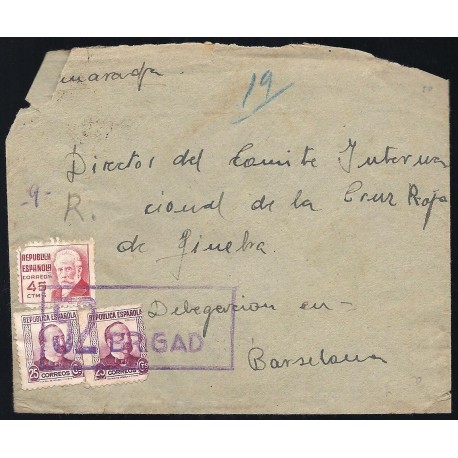 marada
19
Director del Comite Interna
-9-
R.
cional de la Cruz Roja
de Ginebra
REPUBLICA
ESPAÑOLA
CORREOS
45
CTMS
Delegacion en-
REPUBLICA ESPAÑOLA
REPUBLICA ESPAÑOLA
BRIGAD
25 CORREOS Cts
25 CORREOS Cts
Barselona